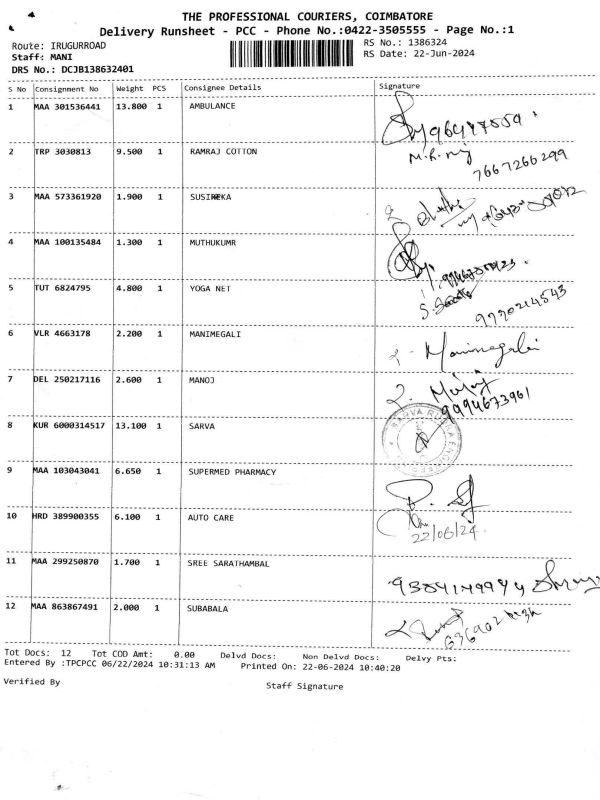 THE PROFESSIONAL COURIERS, COIMBATORE
Delivery Runsheet - PCC - Phone No.:0422-3505555 - Page No.:1
Route: IRUGURROAD
RS No.: 1386324
Staff: MANI
RS Date: 22-Jun-2024
DRS No.: DCJB138632401
S No Consignment No Weight PCS Consignee Details Signature
1 MAA 301536441 13.800 1 AMBULANCE
2 TRP 3030813 9.500 1 RAMRAJ COTTON
7667266299
3 MAA 573361920 1.900 1 SUSIREKA
4 MAA 100135484 1.300 1 MUTHUKUMR
5 TUT 6824795 4.800 1 YOGA NET
6 VLR 4663178 2.200 1 MANIMEGALI
Manimegalai
7 DEL 250217116 2.600 1 MANOJ
Manoj
9994673961
8 KUR 6000314517 13.100 1 SARVA
9 MAA 103043041 6.650 1 SUPERMED PHARMACY
10 HRD 389900355 6.100 1 AUTO CARE
22/06/24
11 MAA 299250870 1.700 1 SREE SARATHAMBAL
12 MAA 863867491 2.000 1 SUBABALA
Tot Docs: 12 Tot COD Amt: 0.00 Delvd Docs: Non Delvd Docs: Delvy Pts:
Entered By :TPCPCC 06/22/2024 10:31:13 AM Printed On: 22-06-2024 10:40:20
Verified By Staff Signature